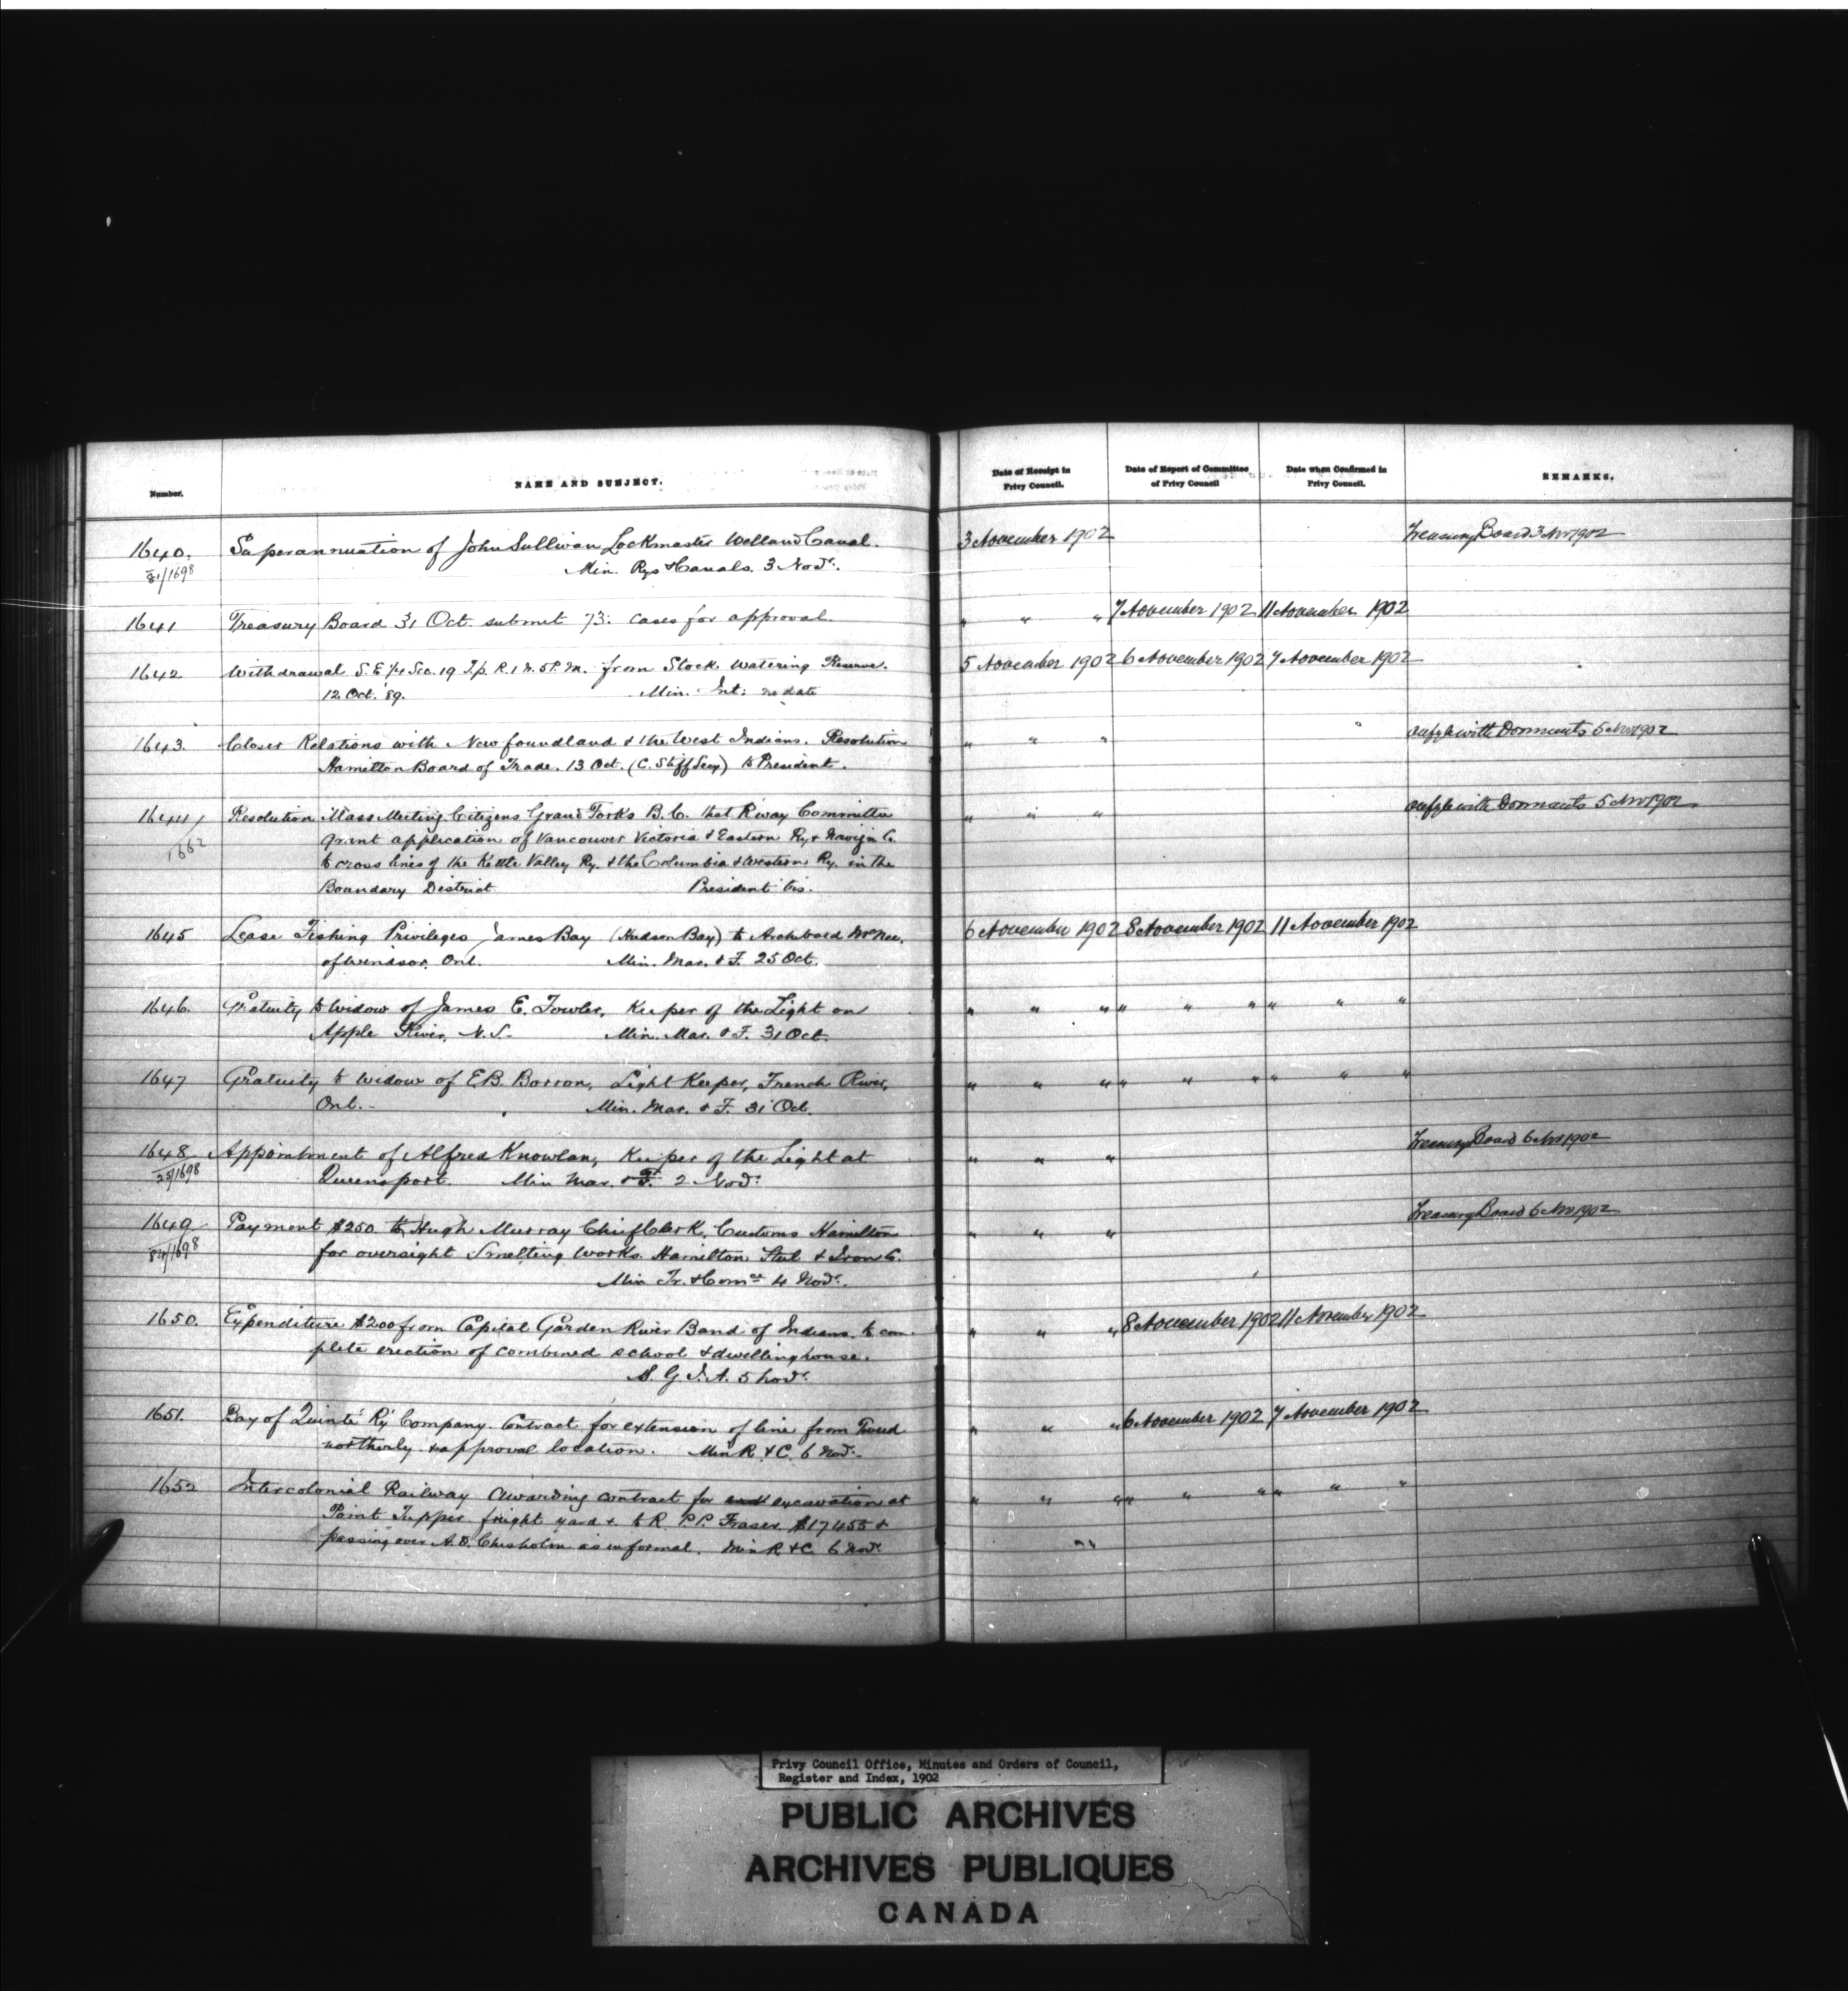 Number.
NAME AND SUBJECT.
Date of Receipt in Privy Council.
Date of Report of Committee of Privy Council
Date when Confirmed in Privy Council.
REMARKS.
1640. Superannuation of John Sullivan Lockmaster Welland Canal. 3 November 1902 Treasury Board 3 Nov 1902
/1698 Min. Rys & Canals. 3 Novr.
1641 Treasury Board 31 Oct. submit 73. cases for approval. " " " 7 November 1902 11 November 1902
1642 Withdrawal S.E 1/4 Sec. 19 Tp. R. 1 W. 5 P. M. from Stock Watering Reserve. 5 November 1902 6 November 1902 7 November 1902
12 Oct. '89. Min. Int: no date
1643. Closer Relations with Newfoundland & the West Indians. Resolution " " " with Dormants 5 Nov 1902
Hamilton Board of Trade. 13 Oct. (C. Stiff Secy) to President.
1644/ Resolution Mass Meeting Citizens Grand Forks B.C. that R'way Committee " " " with Dormants 5 Nov 1902
1662 grant application of Vancouver Victoria & Eastern Ry & Navign Co.
to cross lines of the Kettle Valley Ry. & the Columbia & Western Ry. in the
Boundary District President
1645 Lease Fishing Privileges James Bay (Hudson Bay) to Archibald McNee. 6 November 1902 8 November 1902 11 November 1902
of Windsor, Ont. Min. Mar. & F. 25 Oct.
1646. Gratuity to Widow of James E. Fowler, Keeper of the Light on " " " " " " " " "
Apple River, N.S. Min. Mar. & F. 31 Oct.
1647 Gratuity to Widow of E.B. Borron, Light Keeper, French River, " " " " " " " " "
Ont. Min. Mar. & F. 31 Oct.
1648 Appointment of Alfred Knowlan, Keeper of the Light at " " " Treasury Board 6 Nov 1902
25/1698 Queensport. Min Mar. & F. 2 Novr.
1649 Payment $250 to Hugh Murray Chief Clerk, Customs Hamilton " " " Treasury Board 6 Nov 1902
/1698 for oversight Smelting Works. Hamilton Steel & Iron Co.
Min Tr. & Comce 4 Novr.
1650. Expenditure $200 from Capital Garden River Band of Indians. to com- " " " 8 November 1902 11 November 1902
plete erection of combined school & dwelling house.
S. G. I. A. 5 Novr.
1651. Bay of Quinte Ry Company. Contract for extension of line from Tweed " " " 6 November 1902 7 November 1902
northerly & approval location. Min R. & C. 6 Novr.
1652 Intercolonial Railway Awarding contract for excavation at " " " " " " " " "
Point Tupper freight yard &. to R. P.P. Fraser. $17455 &
passing over A.D. Chisholm as informal. Min R & C 6 Novr.
Privy Council Office, Minutes and Orders of Council,
Register and Index, 1902
PUBLIC ARCHIVES
ARCHIVES PUBLIQUES
CANADA